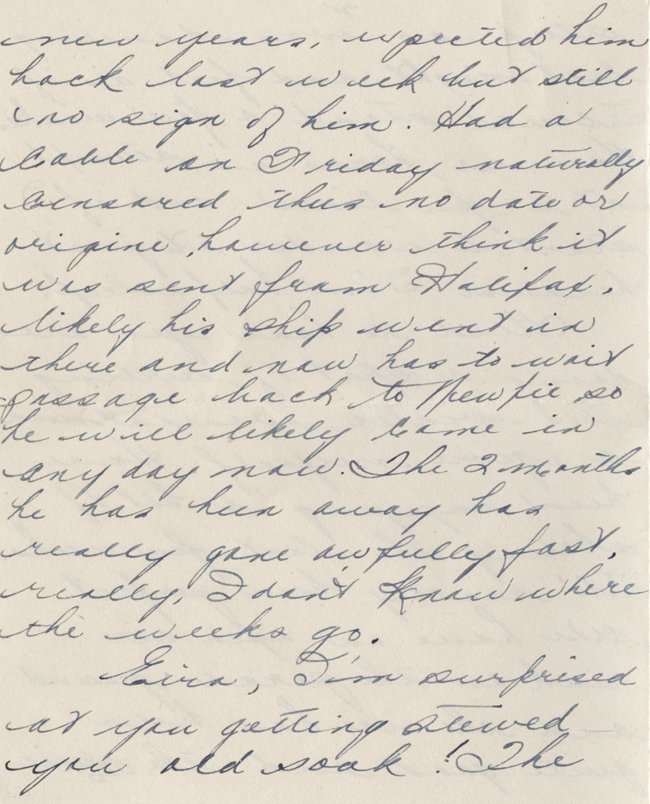 new years, expected him
back last week but still
no sign of him. Had a
Cable on Friday naturally
Censored thus no date or
origine, however think it
was sent from Halifax,
likely his ship went in
there and now has to wait
passage back to Newfie so
he will likely come in
any day now. The 2 months
he has been away has
really gone awfully fast,
really, I don't know where
the weeks go.
Eira, I'm surprised
at you getting stewed
you old soak! The